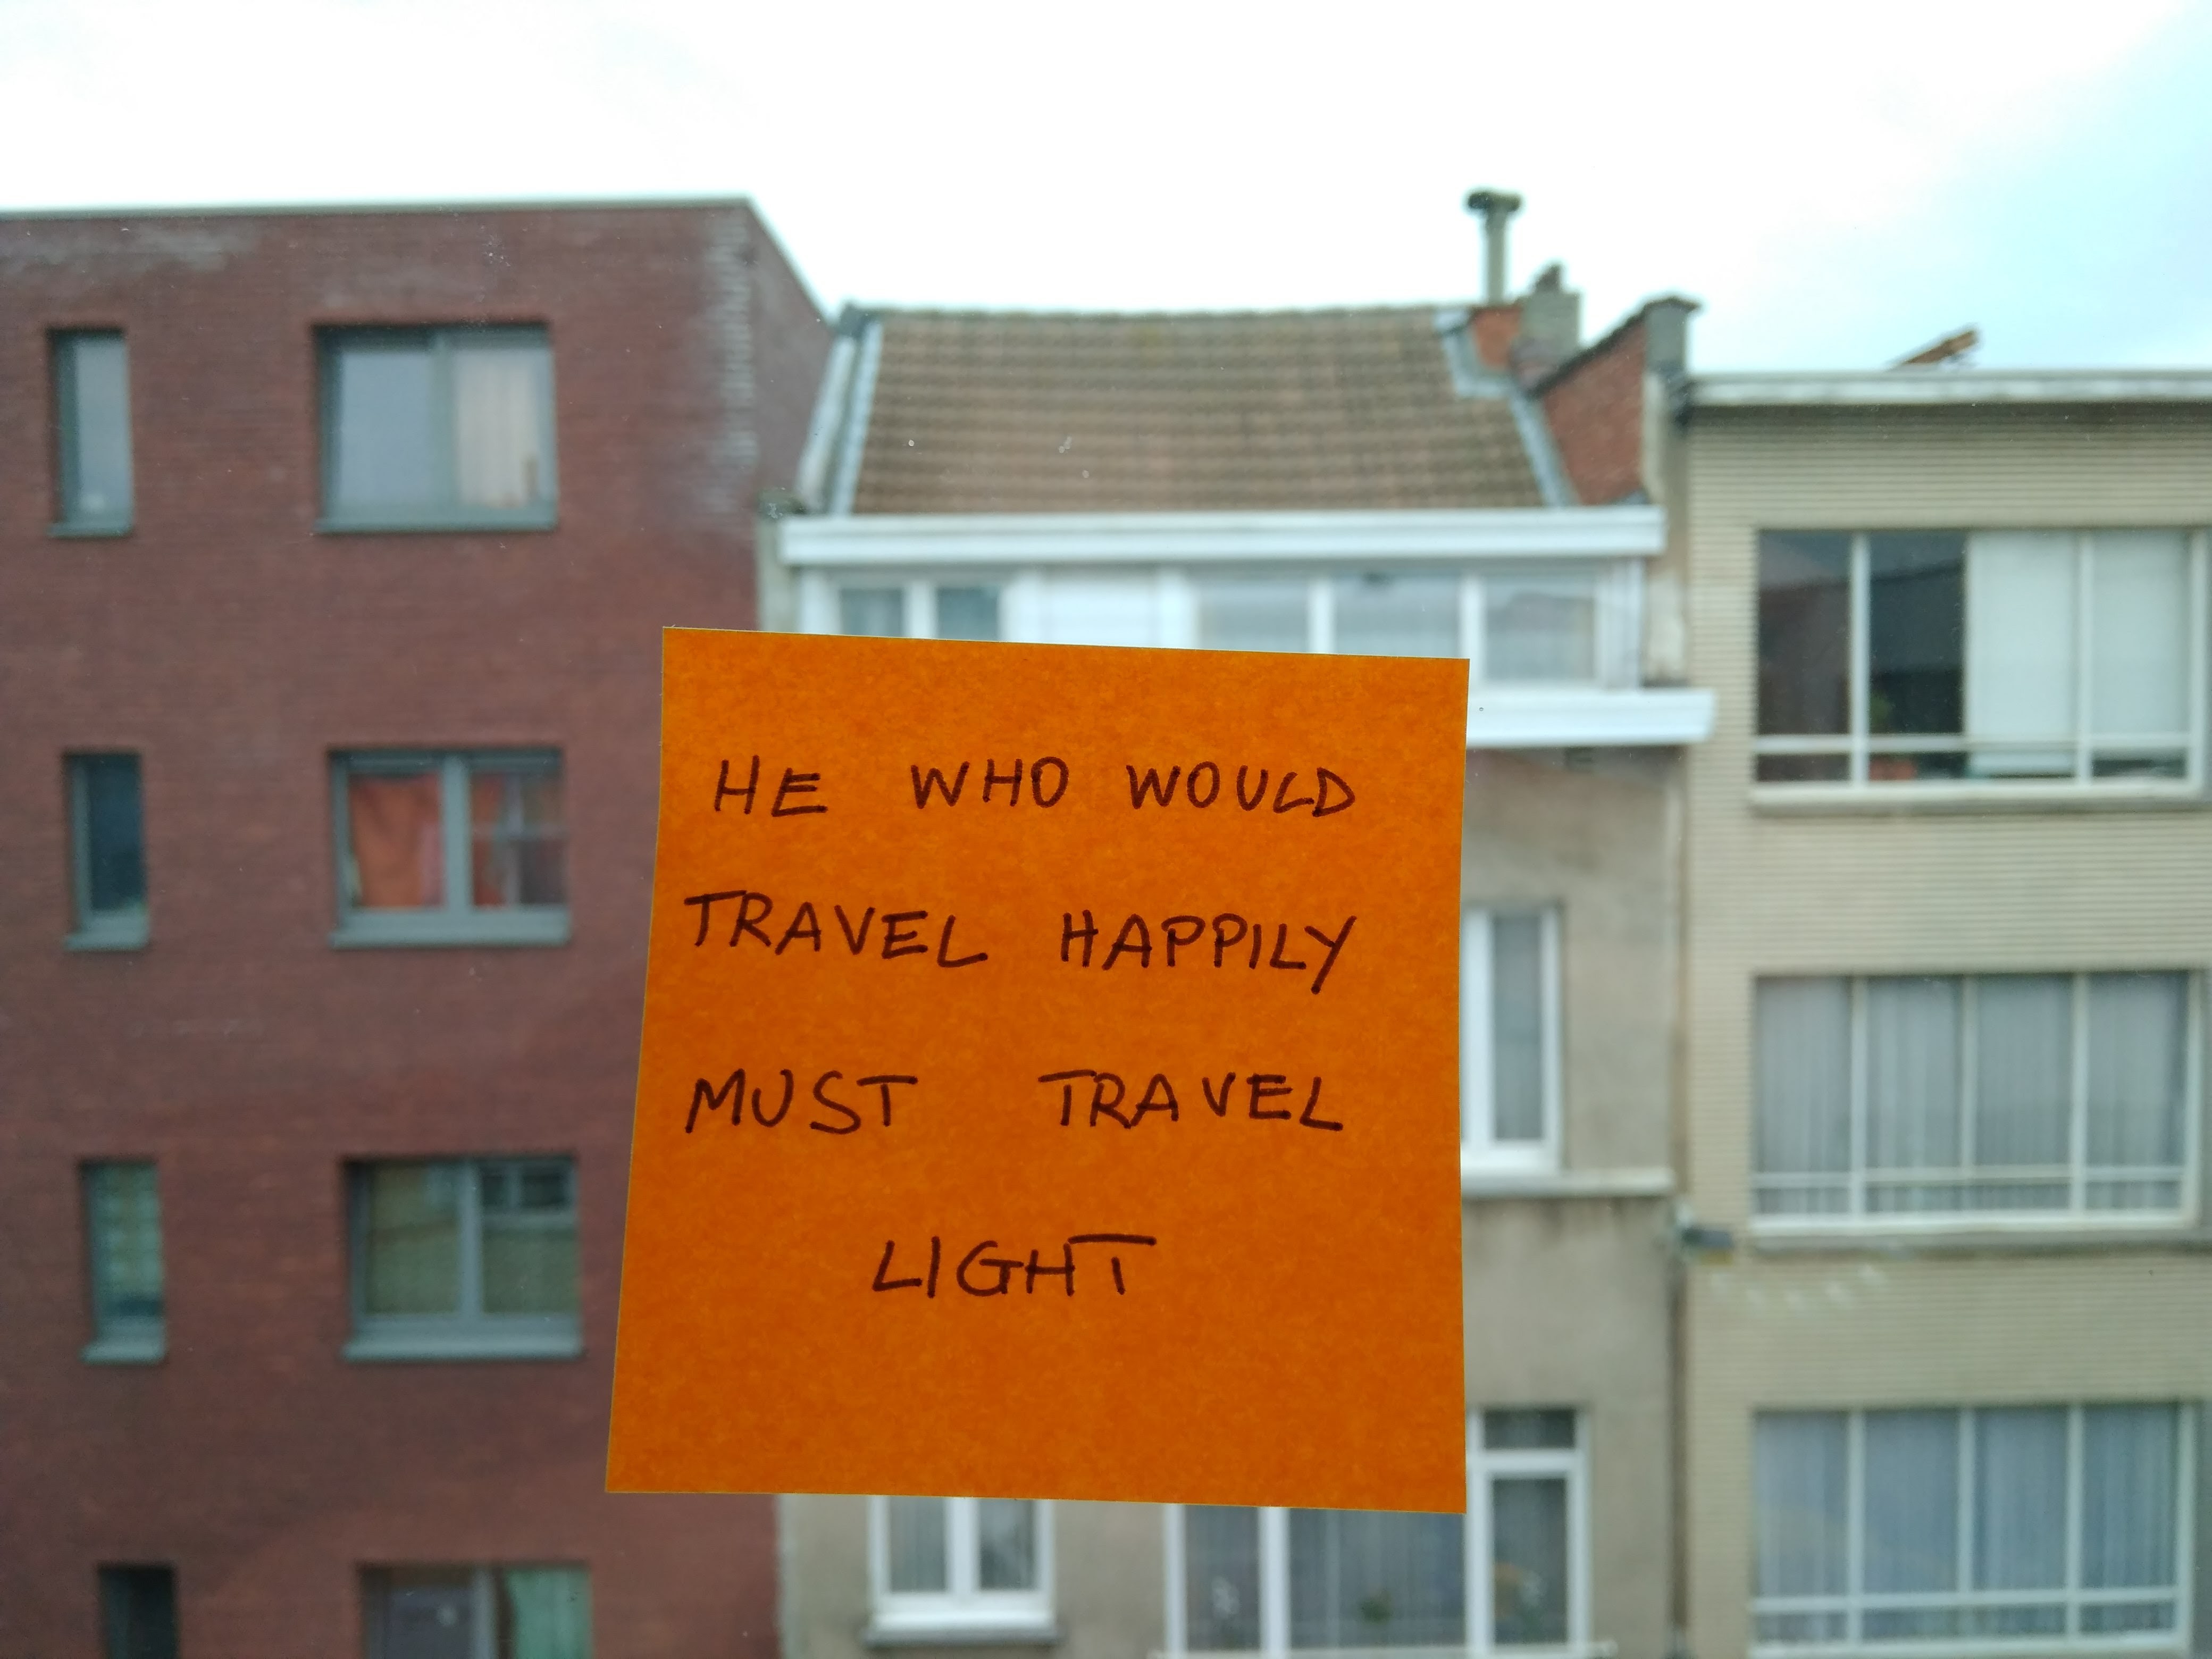 HE WHO WOULD
TRAVEL HAPPILY
MUST TRAVEL
LIGHT